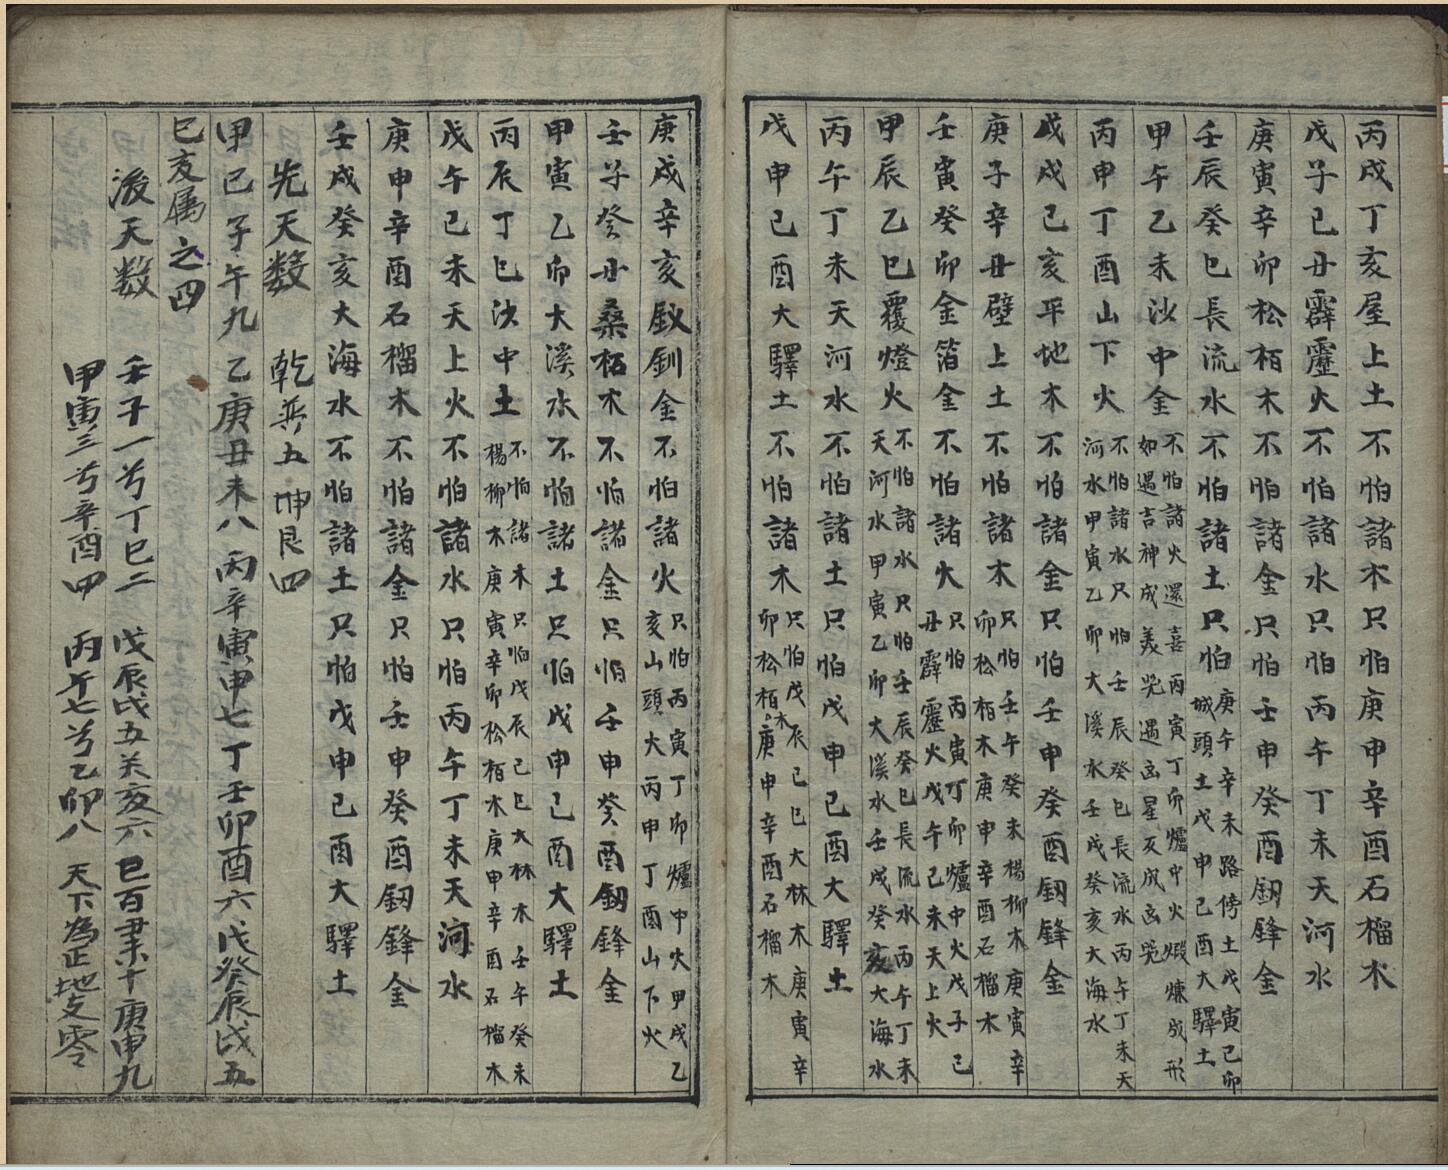 丙戌丁亥屋上土不怕諸木只怕庚申辛酉石榴木
戊子己丑霹靂火不怕諸水只怕丙午丁未天河水
庚寅辛卯松栢木不怕諸金只怕壬申癸酉釼鋒金
壬辰癸巳長流水不怕諸土只怕庚午辛未路傍土戊寅己卯
城頭土戊申己酉大驛土
甲午乙未沙中金不怕諸火還喜丙寅丁卯爐中火煆煉成形
如遇吉神成義兇遇凶星亥成凶兇
丙申丁酉山下火不怕諸水只怕壬辰癸巳長流水丙午丁未天
河水甲寅乙卯大溪水壬戌癸亥大海水
戊戌己亥平地木不怕諸金只怕壬申癸酉釼鋒金
庚子辛丑壁上土不怕諸木只怕壬午癸未楊柳木庚寅辛
卯松栢木庚申辛酉石榴木
壬寅癸卯金箔金不怕諸火只怕丙寅丁卯爐中火戊子己
丑霹靂火戊午己未天上火
甲辰乙巳覆燈火不怕諸水只怕壬辰癸巳長流水丙午丁未
天河水甲寅乙卯大溪水壬戌癸亥大海水
丙午丁未天河水不怕諸土只怕戊申己酉大驛土
戊申己酉大驛土不怕諸木只怕戊辰己巳大林木庚寅辛
卯松栢木庚申辛酉石榴木
庚戌辛亥釵釧金不怕諸火只怕丙寅丁卯爐中火甲戌乙
亥山頭火丙申丁酉山下火
壬子癸丑桑柘木不怕諸金只怕壬申癸酉釼鋒金
甲寅乙卯大溪水不怕諸土只怕戊申己酉大驛土
丙辰丁巳沙中土不怕諸木只怕戊辰己巳大林木壬午癸未
楊柳木庚寅辛卯松栢木庚申辛酉石榴木
戊午己未天上火不怕諸水只怕丙午丁未天河水
庚申辛酉石榴木不怕諸金只怕壬申癸酉釼鋒金
壬戌癸亥大海水不怕諸土只怕戊申己酉大驛土
先天数 乾兊五 坤艮四
甲己子午九 乙庚丑未八 丙辛寅申七 丁壬卯酉六 戊癸辰戌五
巳亥属之四
後天数 壬子一兮丁巳二 戊辰戌五癸亥六 己百丑未十庚申九
甲寅三兮辛酉四 丙午七兮乙卯八 天下為正地支零